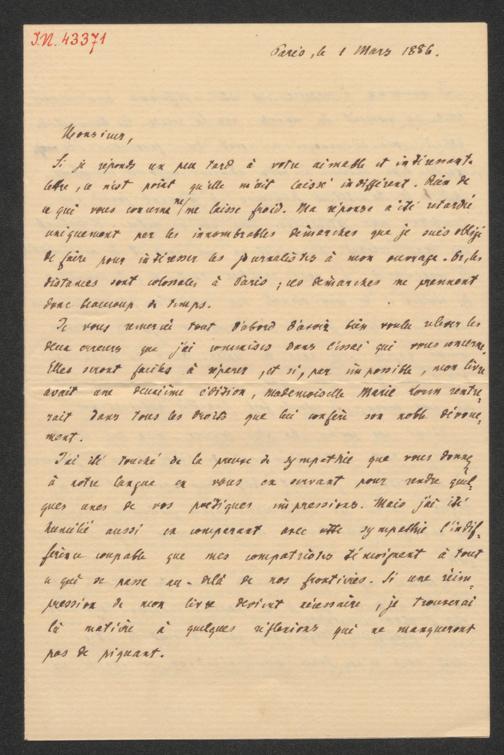 I.N. 43371
Paris, le 1 Mars 1886.
Monsieur,
Si je réponds un peu tard à votre aimable et intéressante
lettre, ce n'est point qu'elle m'ait laissé indifférent. Rien de
ce qui vous concerne ne me laisse froid. Ma réponse a été retardée
uniquement par les innombrables démarches que je suis obligé
de faire pour intéresser les journalistes à mon ouvrage. Or, les
distances sont colossales à Paris ; ces démarches me prennent
donc beaucoup de temps.
Je vous remercie tout d'abord d'avoir bien voulu relever les
deux erreurs que j'ai commises dans l'essai qui vous concerne.
Elles seront faciles à réparer, et si, par impossible, mon livre
avait une deuxième édition, Mademoiselle Marie rentre-
rait dans tous les droits que lui confère son noble dévoue-
ment.
J'ai été touché de la preuve de sympathie que vous donnez
à notre langue en vous en servant pour rendre quel-
ques unes de vos poétiques impressions. Mais j'ai été
humilié aussi en comparant avec cette sympathie l'indif-
férence coupable que mes compatriotes témoignent à tout
ce qui se passe au-delà de nos frontières. Si une réim-
pression de mon livre devient nécessaire, je trouverai
là matière à quelques réflexions qui ne manqueront
pas de piquant.